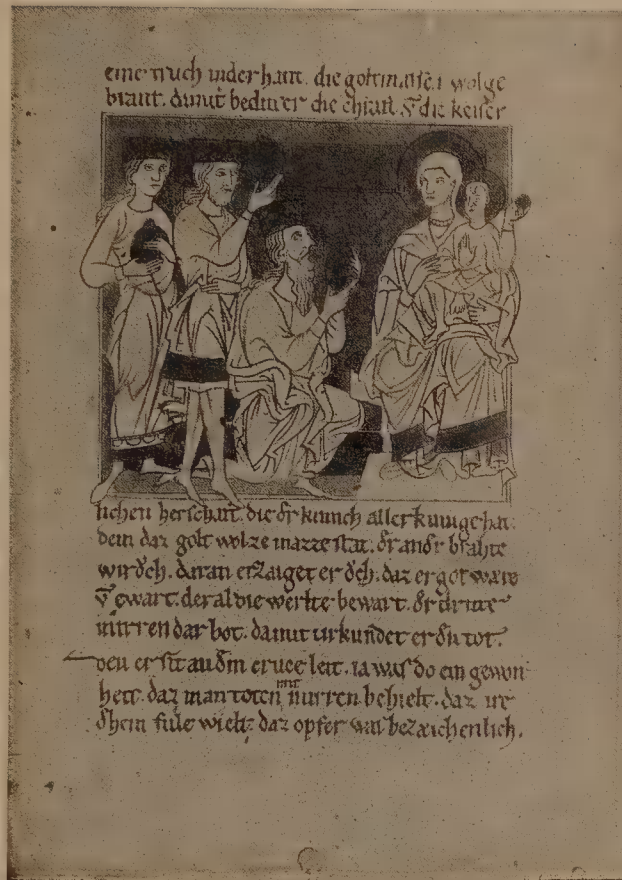 eine truch inder hant. die goltmasse. wolge
brant. damit bediut er die chraft. vn̄ die keiser
lichen herschaft. die dr kunich aller kunige hat.
dem daz golt wol ze mazze stat. dr andr brahte
daran erzaiget er daz er got wære
vn̄ ewart. der al die werlte bewart. dr dritte
mirren dar bot. damit urkundet er tot.
den er sit an dem cruce leit. ia was do ein gewon
heit. daz man toten mit mirren behielt. daz ir
dhein fule wielt. daz opfer was bezaichenlich.